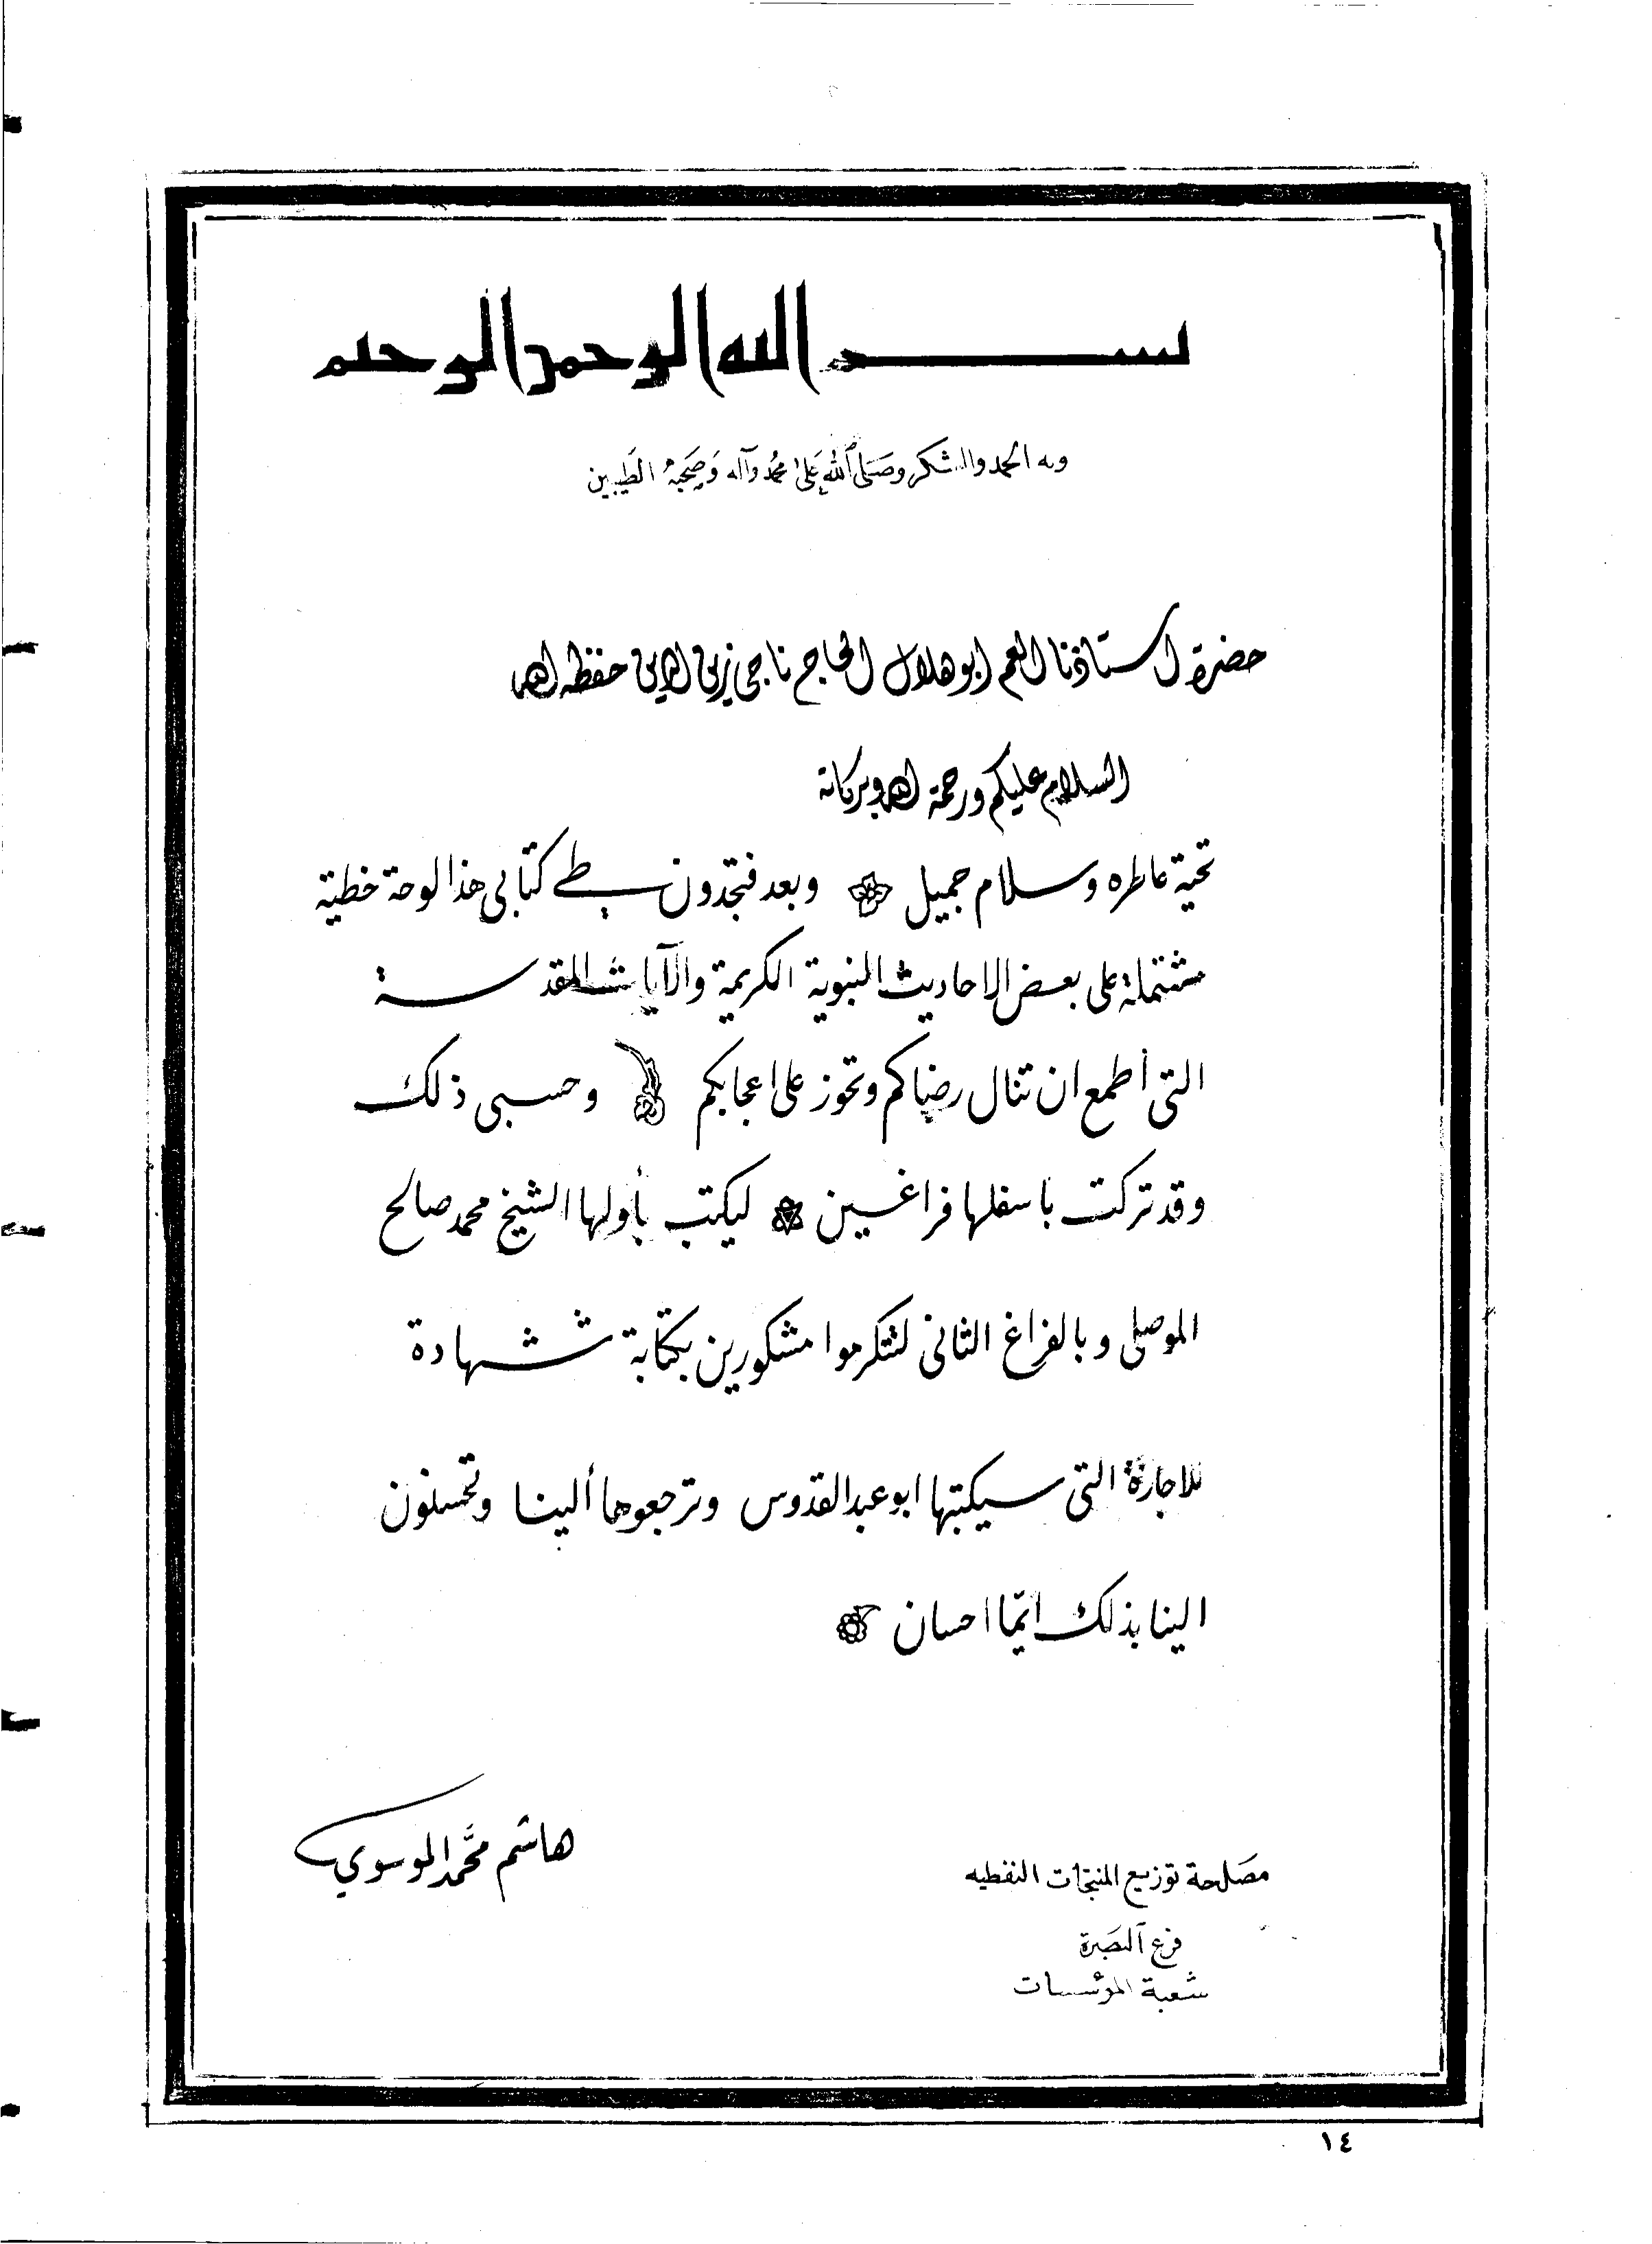 بسم الله الرحمن الرحيم
وله الحمد والشكر وصلى الله على محمد وآله وصحبه الطيبين
حضرة استاذنا العم ابو هلال الحاج ناجي زين الدين حفظه الله
السلام عليكم ورحمة الله وبركاته
تحية عاطره وسلام جميل وبعد فتجدون بطي كتابي هذا لوحة خطية
مشتملة على بعض الاحاديث النبوية الكريمة والآيات المقدسة
التي أطمع ان تنال رضاكم وتحوز على اعجابكم وحسبي ذلك
وقد تركت باسفلها فراغين ليكتب بأولها الشيخ محمد صالح
الموصلي وبالفراغ الثاني لتتكرموا مشكورين بكتابة شهادة
للاجازة التي سيكتبها ابو عبد القدوس وترجعوها ألينا وتحسنون
الينا بذلك ايّما احسان
هاشم محمد الموسوي
مصلحة توزيع المنتجات النفطيه
فرع البصرة
شعبة المؤسسات
١٤